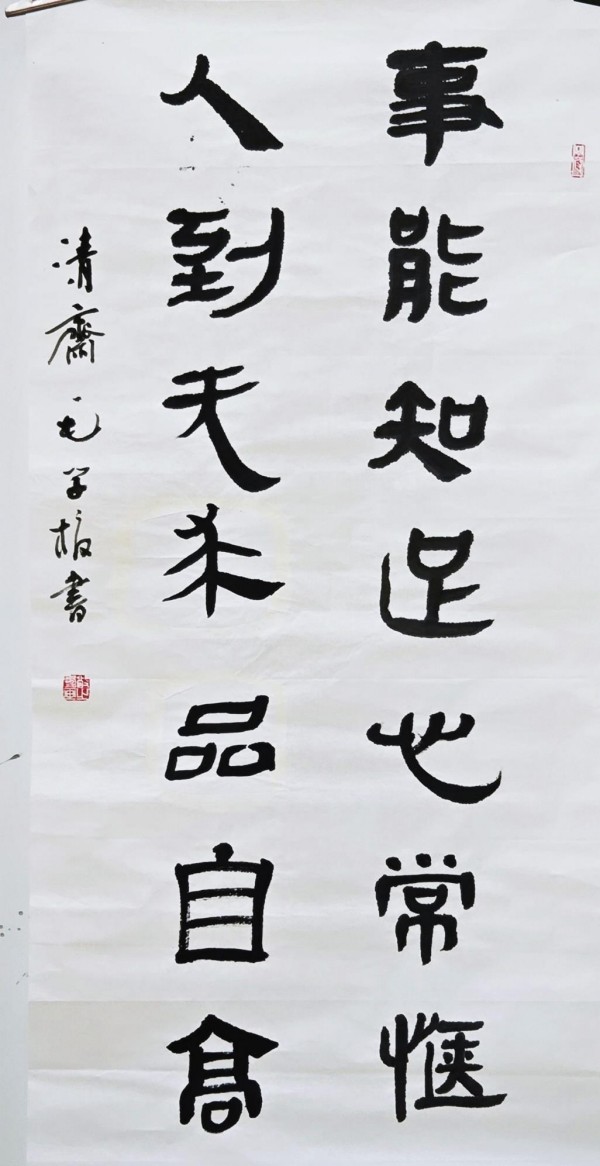 事能知足心常愜
人到无求品自高
清齋毛学書